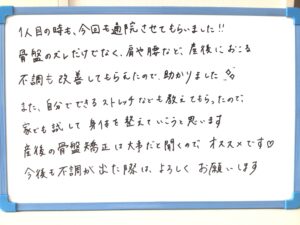 1人目の時も、今回も通院させてもらいました!!
骨盤のズレだけでなく、肩や腰など、産後におこる
不調も改善してもらえたので、助かりました
また、自分でできるストレッチなども教えてもらったので、
家でも試して身体を整えていこうと思います
産後の骨盤矯正は大事だと聞くので、オススメです♡
今後も不調が出た際は、よろしくお願いします